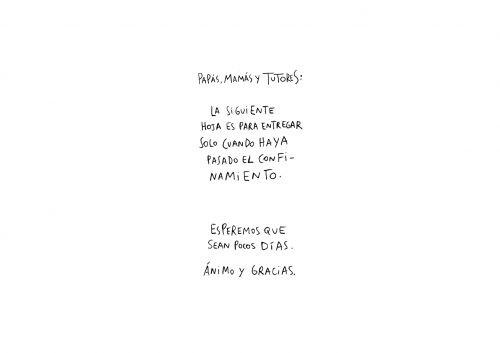 PAPÁS, MAMÁS Y TUTORES:
LA SIGUIENTE
HOJA ES PARA ENTREGAR
SOLO CUANDO HAYA
PASADO EL CONFI-
NAMIENTO.
ESPEREMOS QUE
SEAN POCOS DÍAS.
ÁNIMO Y GRACIAS.